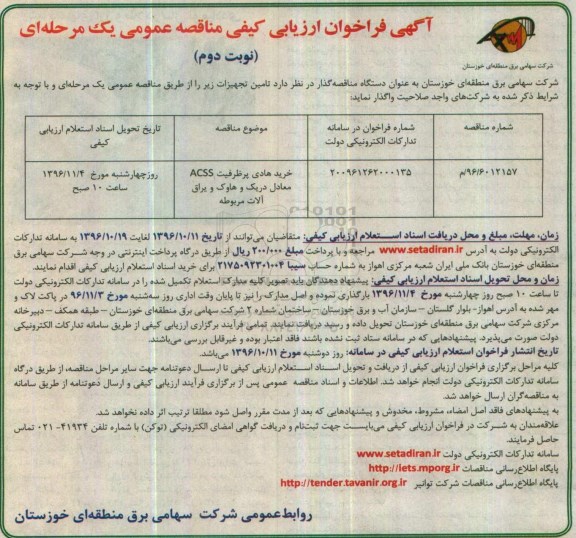 آگهی فراخوان ارزیابی کیفی مناقصه عمومی یک مرحله‌ای
(نوبت دوم)
شرکت سهامی برق منطقه‌ای خوزستان
شرکت سهامی برق منطقه‌ای خوزستان به عنوان دستگاه مناقصه‌گذار در نظر دارد تامین تجهیزات زیر را از طریق مناقصه عمومی یک مرحله‌ای و با توجه به
شرایط ذکر شده به شرکت‌های واجد صلاحیت واگذار نماید:
شماره مناقصه
شماره فراخوان در سامانه تدارکات الکترونیکی دولت
موضوع مناقصه
تاریخ تحویل اسناد استعلام ارزیابی کیفی
۹۶/۶۰۱۲۱۵۷/م
۲۰۰۹۶۱۲۶۲۰۰۰۱۳۵
خرید هادی پرظرفیت ACSS
معادل دریک و هاوک و یراق
آلات مربوطه
روزچهارشنبه مورخ ۱۳۹۶/۱۱/۴
ساعت ۱۰ صبح
زمان، مهلت، مبلغ و محل دریافت اسناد استعلام ارزیابی کیفی: متقاضیان می‌توانند از تاریخ ۱۳۹۶/۱۰/۱۱ لغایت ۱۳۹۶/۱۰/۱۹ به سامانه تدارکات
الکترونیکی دولت به آدرس www.setadiran.ir مراجعه و با پرداخت مبلغ ۲۰۰/۰۰۰ ریال از طریق درگاه پرداخت اینترنتی در وجه شرکت سهامی برق
منطقه‌ای خوزستان بانک ملی ایران شعبه مرکزی اهواز به شماره حساب سیبا ۲۱۷۵۰۹۲۳۰۱۰۰۴ برای خرید اسناد استعلام ارزیابی کیفی اقدام نمایند.
زمان و محل تحویل اسناد استعلام ارزیابی کیفی: پیشنهاد دهندگان باید تصویر کلیه مدارک استعلام تکمیل شده را در سامانه تدارکات الکترونیکی دولت
تا ساعت ۱۰ صبح روز چهارشنبه مورخ ۱۳۹۶/۱۱/۴ بارگذاری نموده و اصل مدارک را نیز تا پایان وقت اداری روز سه‌شنبه مورخ ۹۶/۱۱/۳ در پاکت لاک و
مهر شده به آدرس اهواز - بلوار گلستان - سازمان آب و برق خوزستان - ساختمان شماره ۲ شرکت سهامی برق منطقه‌ای خوزستان - طبقه همکف - دبیرخانه
مرکزی شرکت سهامی برق منطقه‌ای خوزستان تحویل داده و رسید دریافت نمایند. تمامی فرآیند برگزاری ارزیابی کیفی از طریق سامانه تدارکات الکترونیکی
دولت صورت می‌پذیرد. پیشنهادهایی که در سامانه ستاد ثبت نشده باشند فاقد اعتبار بوده و غیرقابل بررسی می‌باشند.
تاریخ انتشار فراخوان استعلام ارزیابی کیفی در سامانه: روز دوشنبه مورخ ۱۳۹۶/۱۰/۱۱ می‌باشد.
کلیه مراحل برگزاری فراخوان ارزیابی کیفی از دریافت و تحویل اسناد استعلام ارزیابی کیفی تا ارسال دعوتنامه جهت سایر مراحل مناقصه، از طریق درگاه
سامانه تدارکات الکترونیکی دولت انجام خواهد شد. اطلاعات و اسناد مناقصه عمومی پس از برگزاری فرآیند ارزیابی کیفی و ارسال دعوتنامه از طریق سامانه
به مناقصه‌گران ارسال خواهد شد.
به پیشنهادهای فاقد اصل امضاء، مشروط، مخدوش و پیشنهادهایی که بعد از مدت مقرر واصل شود مطلقا ترتیب اثر داده نخواهد شد.
علاقه‌مندان به شرکت در فراخوان ارزیابی کیفی می‌بایست جهت ثبت‌نام و دریافت گواهی امضای الکترونیکی (توکن) با شماره تلفن ۴۱۹۳۴- ۰۲۱ تماس
حاصل فرمایند.
سامانه تدارکات الکترونیکی دولت www.setadiran.ir
پایگاه اطلاع‌رسانی مناقصات http://iets.mporg.ir
پایگاه اطلاع‌رسانی مناقصات شرکت توانیر http://tender.tavanir.org.ir
روابط‌عمومی شرکت سهامی برق منطقه‌ای خوزستان